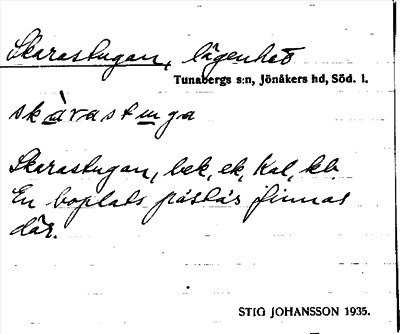 Skarastugan, lägenhet
Tunabergs s:n, Jönåkers hd, Söd. l.
skàrastuga
Skarastugan, bek, ek, kal, kb.
En boplats påstås finnas
där.
STIG JOHANSSON 1935.